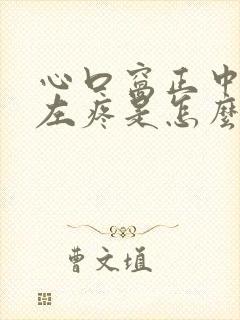 心口窝正中偏
左疼是怎麼
曹文埴